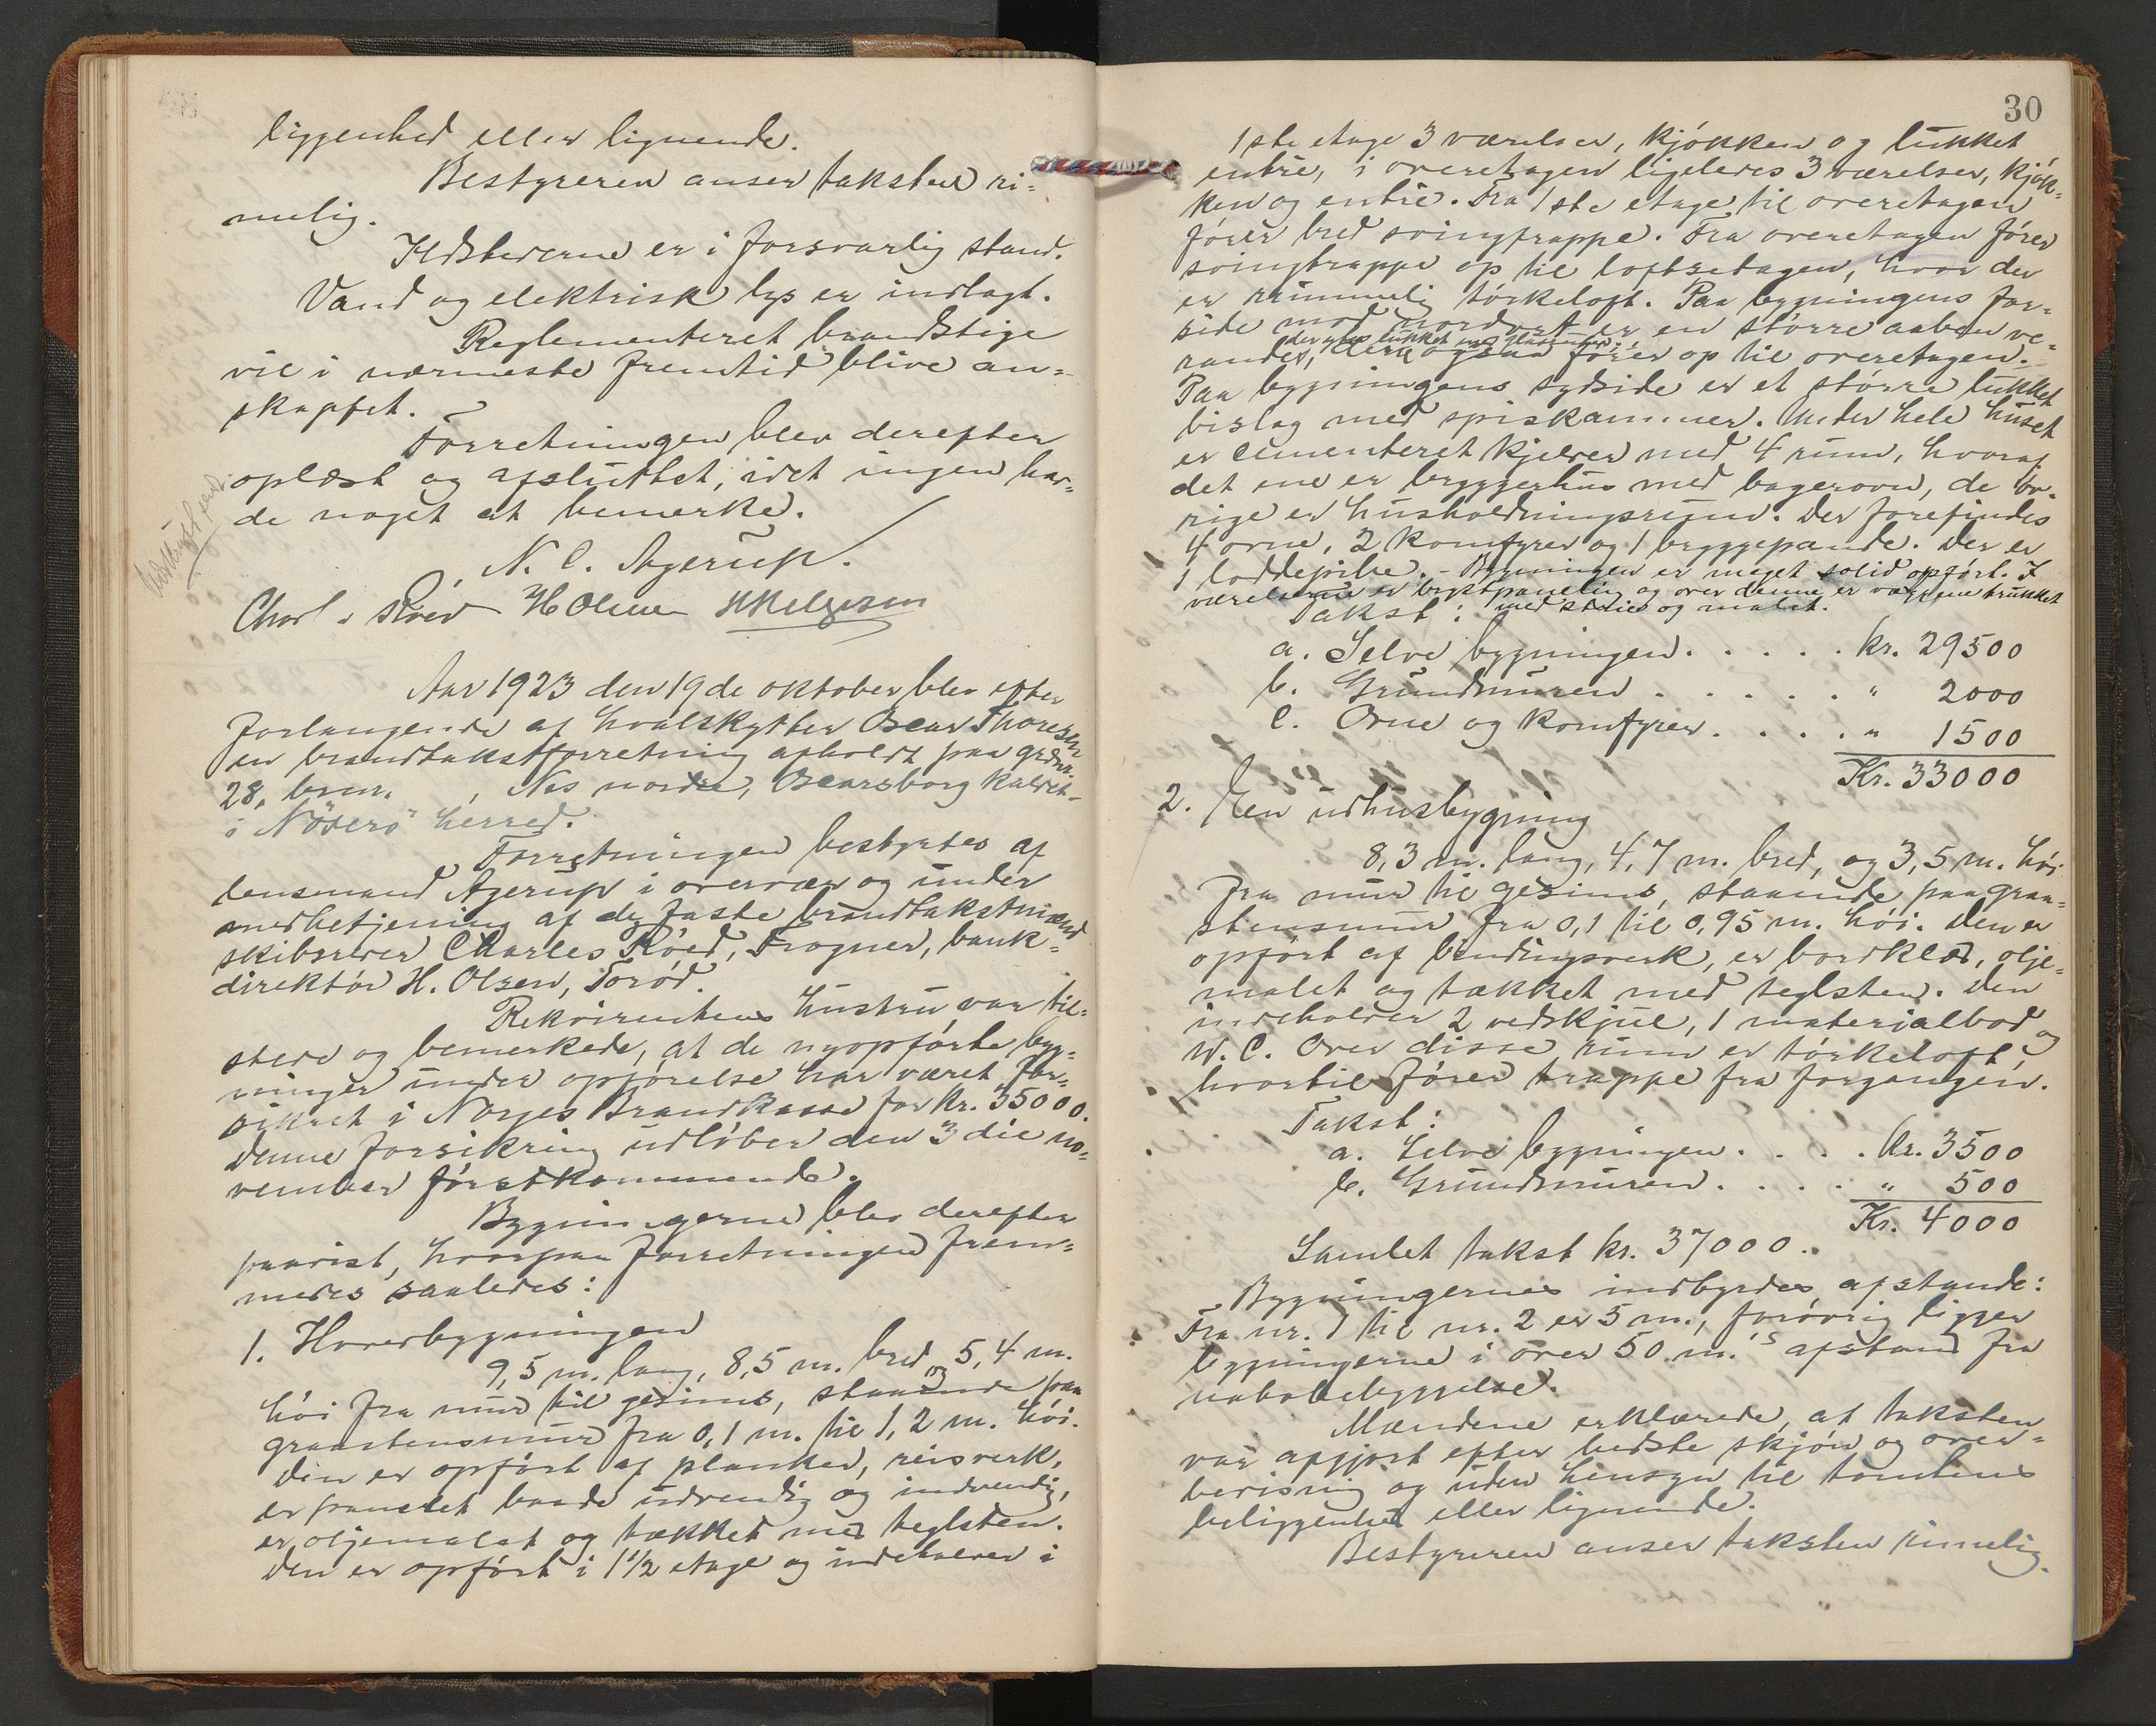 liggenhed eller lignende.
Bestyreren anser taksten ri=
melig.
Ildstederne er i forsvarlig stand.
Vand og elektrisk lys er indlagt.
Reglementeret brandstige
vil i nærmeste fremtid blive an=
skaffet.
Forretningen blev derefter
oplæst og afsluttet, idet ingen hav=
de noget at bemerke.
N. C. Agerup.
Charles Röed H Olsen
Aar 1923 den 19de oktober blev efter
forlangende af hvalskytter Oscar Thoresen
en brandtakstforretning afholdt paa grdnr.
28, brnr. , Nes nordre, Oscarsborg kaldet
i Nöterö herred.
Forretningen bestyrtes af
lensmand Agerup i overvær og under
medbetjening af de faste brandtakstmænd
skibsreder Charles Röed, Frogner, bank=
direktör H. Olsen, Toröd.
Rekvirentens hustru var til=
stede og bemerkede, at de nyopförte byg=
ninger under opförelse har været for=
sikret i Norges Brandkasse for kr. 35000.
Denne forsikring udlöber den 3die no=
vember förstkommende.
Bygningerne blev derefter
paavist, hvorpaa forretningen frem=
medes saaledes:
1. Hovedbygningen
9,5 m. lang, 8,5 m. bred og 5,4 m.
höi fra mur til gesims, staaende paa
graastensmur fra 0,1 m. til 1,2 m. höi.
Den er opfört af planker, reisverk,
er panelet baade udvendig og indvendig,
er oljemalet og tækket med teglsten.
Den er opfört i 1½ etage og indeholder i
30
1ste etage 3 værelser, kjökken og lukket
entre, i overetagen ligeledes 3 værelser, kjök=
ken og entre. Fra 1ste etage til overetagen
förer bred svingtrappe. Fra overetagen förer
svingtrappe op til loftsetagen, hvor der
er rummelig törkeloft. Paa bygningens for=
side mod nordvest er en större aaben ve=
randa, der ogsaa förer op til overetagen.
Paa bygningens sydside er et större lukket
bislag med spiskammer. Under hele huset
er cementeret kjelder med 4 rum, hvoraf
det ene er bryggerhus med bagerovn, de öv=
rige er husholdningsrum. Der forefindes
4 ovne, 2 komfyrer og 1 bryggepande. Der er
1 loddepibe. - Bygningen er meget solid opfört. I
værelserne er brystpaneling og over denne er væggene trukket
med strie og malet.
Takst:
a. Selve bygningen. . . . . kr. 29500
b. Grundmuren . . . . . " 2000
c. Ovne og komfyrer. . . . . " 1500
Kr. 33000
2. En udhusbygning
8,3 m. lang, 4,7 m. bred, og 3,5 m. höi
fra mur til gesims, staaende paa graa=
stensmur fra 0,1 til 0,95 m. höi. Den er
opfört af bindingsverk, er bordklæd, olje=
malet og tækket med teglsten. Den
indeholder 2 vedskjul, 1 materialbod og
W. C. Over disse rum er törkeloft,
hvortil förer trappe fra forgangen.
Takst:
a. Selve bygningen. . . . kr. 3500
b. Grundmuren. . . . " 500
Kr. 4000
Samlet takst kr. 37000.
Bygningernes indbyrdes afstande:
Fra nr. 1 til nr. 2 er 5 m., forövrig ligger
bygningerne i over 50 m.'s afstand fra
nabobebyggelse.
Mændene erklærede, at taksten
var afgjort efter bedste skjön og over=
bevisning og uden hensyn til tomtens
beliggenhed eller lignende.
Bestyreren anser taksten rimelig.